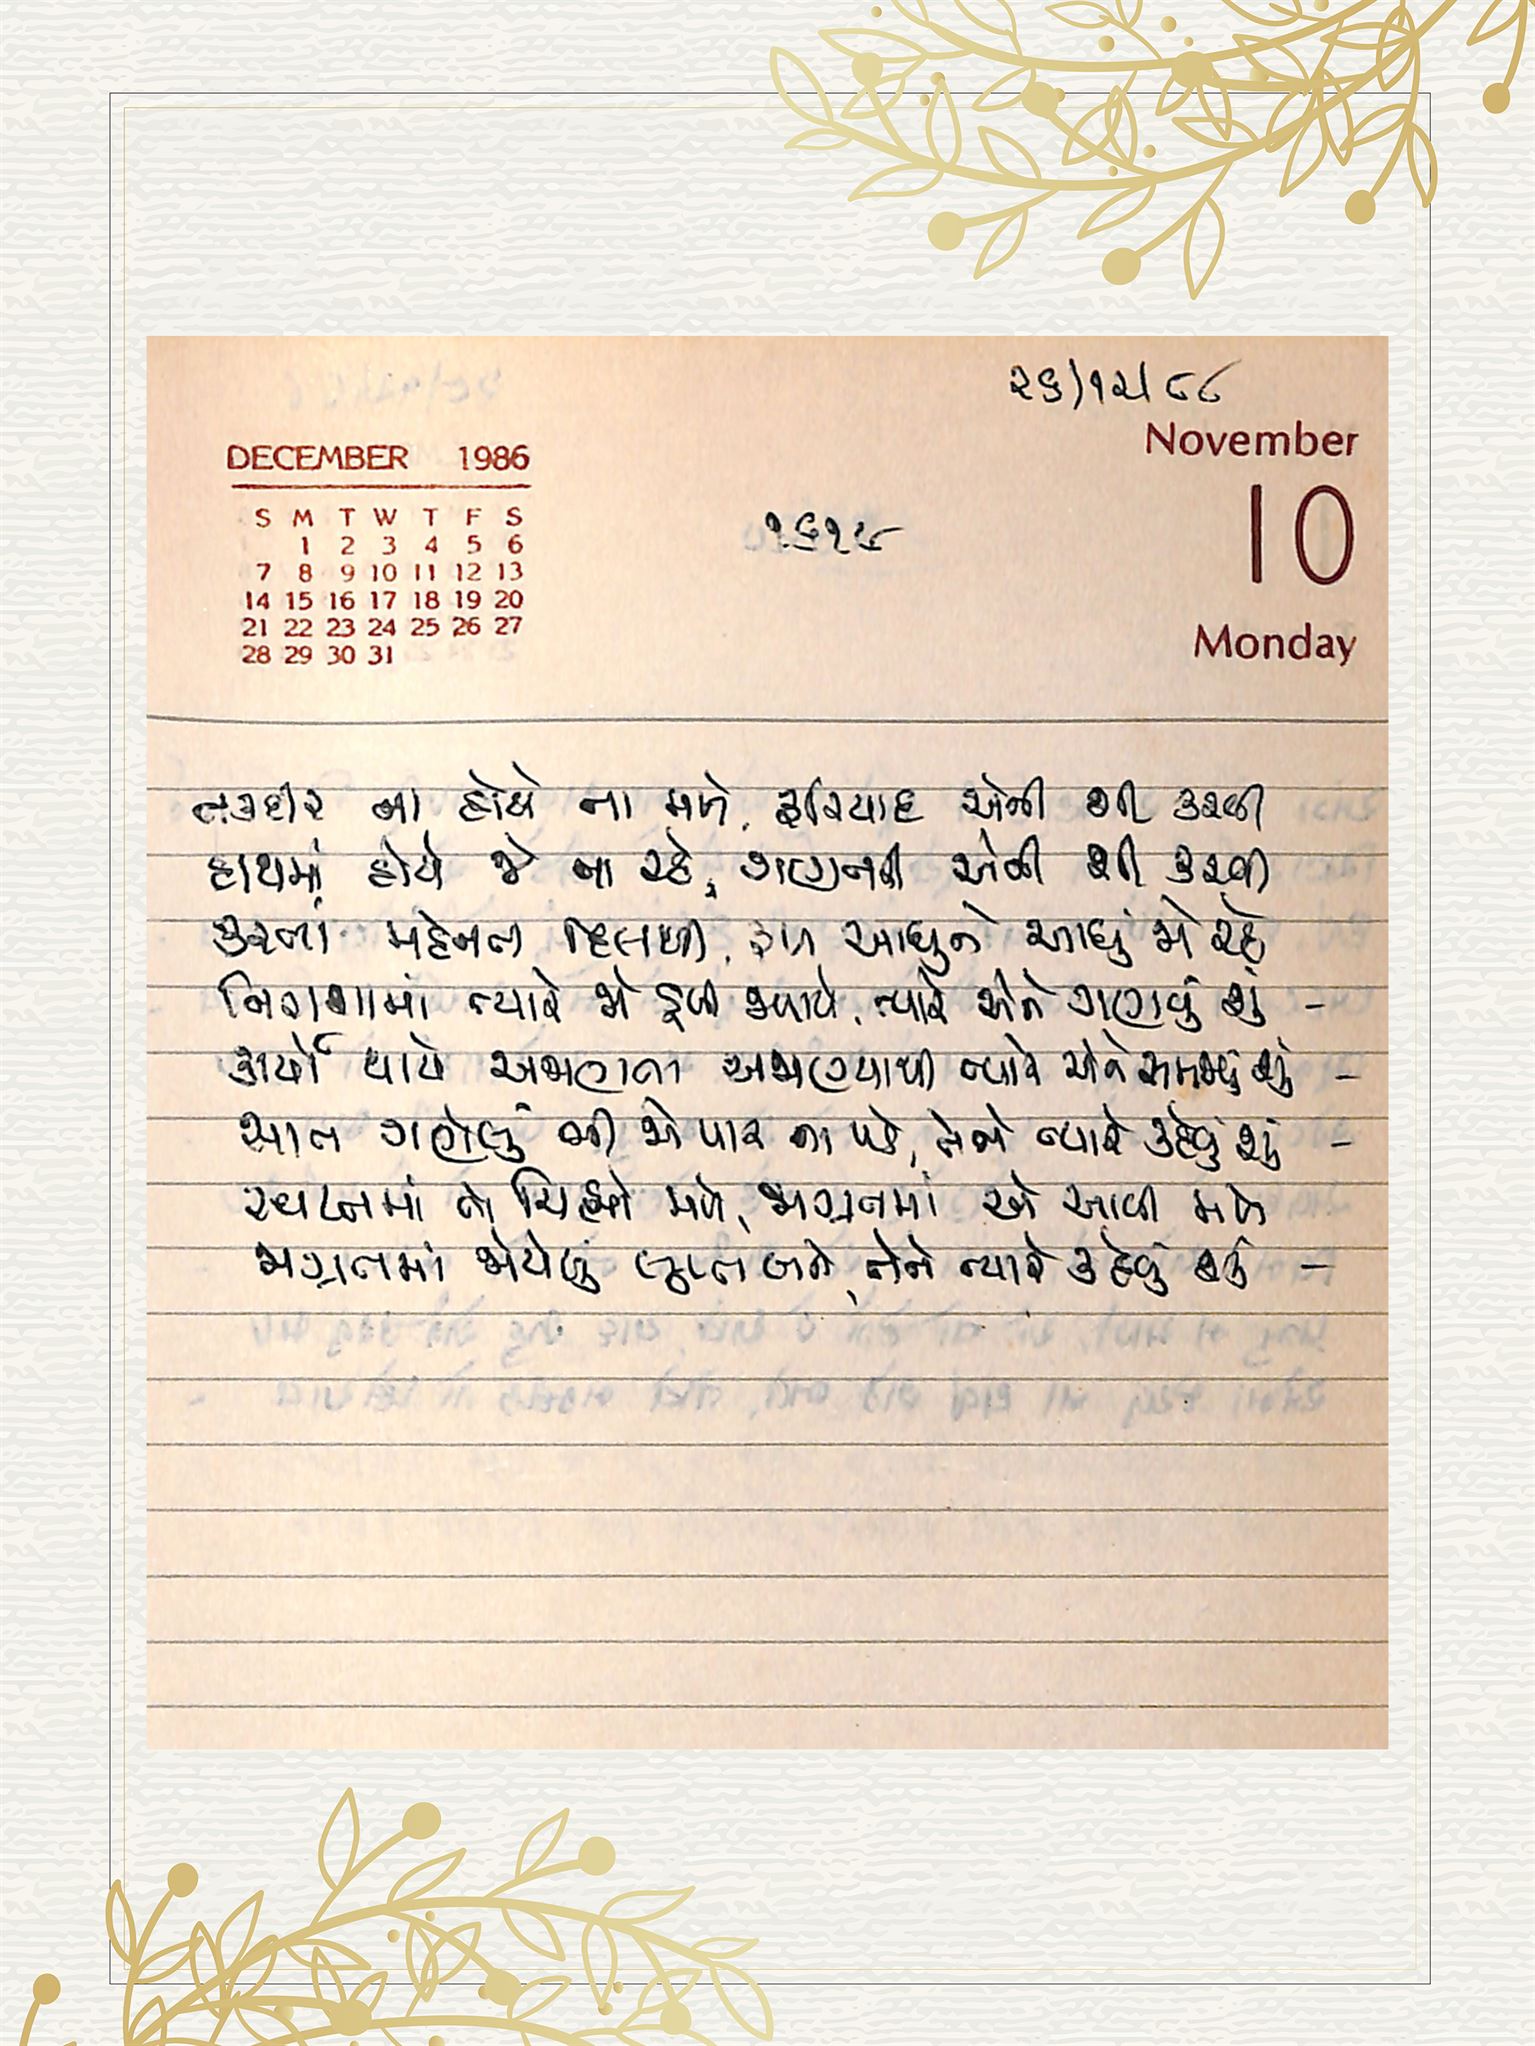 ૨૬/૧૨/૮૮
November
10
Monday
DECEMBER 1986
S M T W T F S
1 2 3 4 5 6
7 8 9 10 11 12 13
14 15 16 17 18 19 20
21 22 23 24 25 26 27
28 29 30 31
૧૬૧૯
તકદીર ના હોયે ના મળે, ફરિયાદ એની શી કરવી
હાથમાં હોયે જે ના રહે, ગણતરી એની શી કરવી
કરતાં મહેનત દિલથી, ફળ આઘુંને આઘું જો રહે
નિરાશામાં ત્યારે જો ડૂબી જવાયે, ત્યારે એને ગણવું શું –
કાર્યો થાયે અજાણતા અજાણ્યાથી ત્યારે એને સમજવું શું –
સાત ગણેલું બી જો પાર ના પડે, તેને ત્યારે કહેવું શું –
સ્વપ્નમાં જે ચિહ્નો મળે, જાગ્રતમાં એ આવી મળે
જાગ્રતમાં જોયેલું લુપ્ત બને, તેને ત્યારે કહેવું શું –